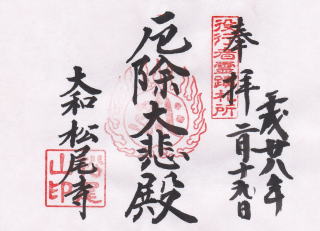 平成廿八年
二月十九日
奉拝
役行者霊跡札所
厄除大悲殿
大和松尾寺
松尾山印